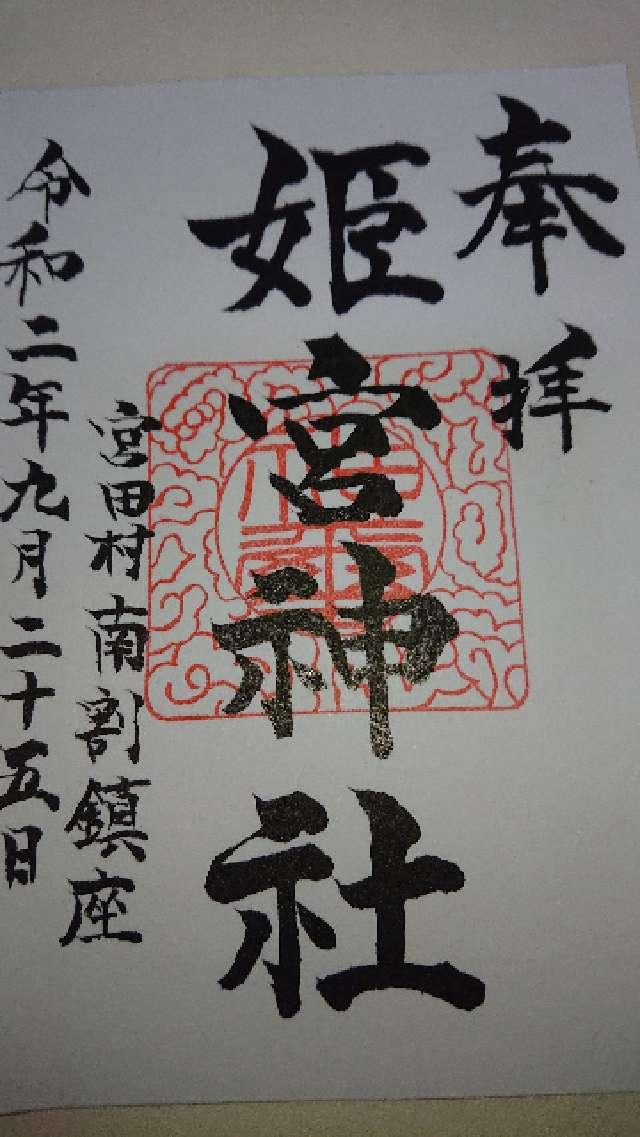 奉拝
姫宮神社
宮田村南割鎮座
令和二年九月二十五日